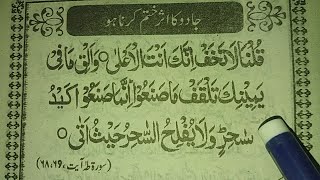 جادو کا اثر ختم کرنا ہو
قُلْنَا لَا تَخَفْ اِنَّكَ اَنْتَ الْاَعْلٰى ۝ وَاَلْقِ مَا فِیْ
یَمِیْنِكَ تَلْقَفْ مَا صَنَعُوْا ؕ اِنَّمَا صَنَعُوْا كَیْدُ
سٰحِرٍ ؕ وَلَا یُفْلِحُ السّٰحِرُ حَیْثُ اَتٰی ۝
(سورۃ طہٰ آیت ۶۸،۶۹)